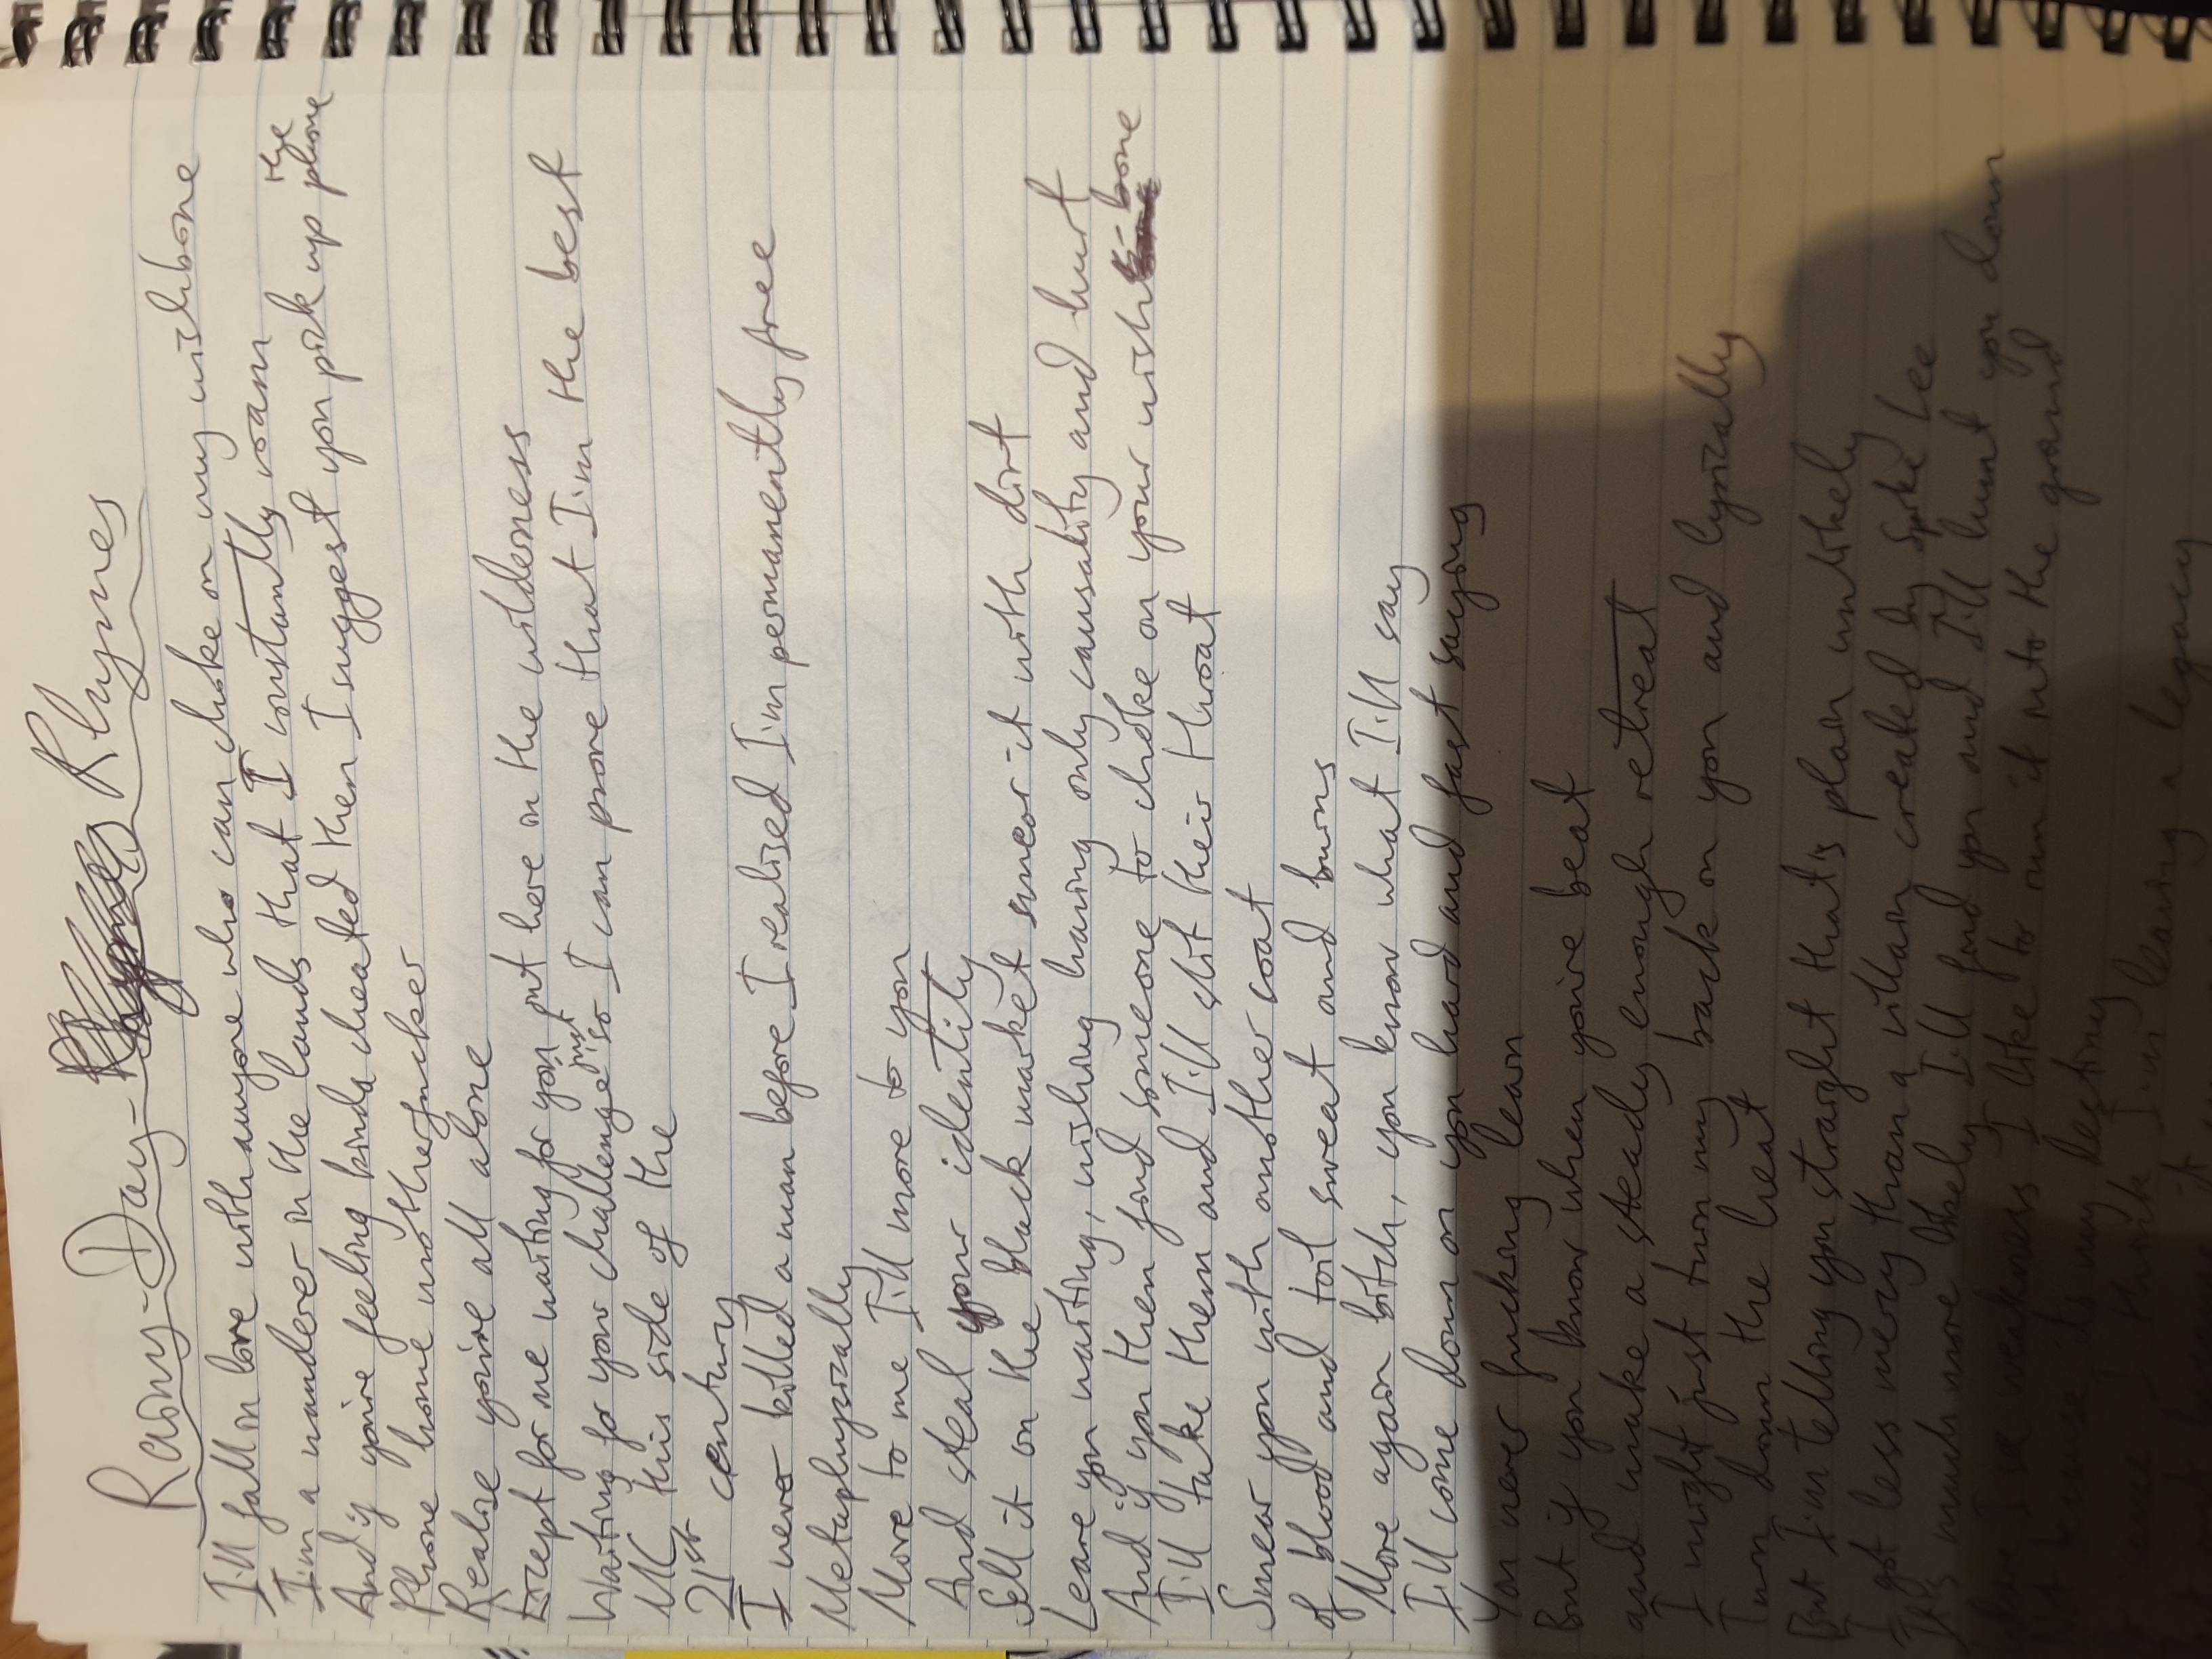 Rainy-Day- Rhymes
I'll fall in love with anyone who can choke on my wishbone
I'm a wanderer in the lands that I constantly roam
And if you're feeling kinda cheated then I suggest you pick up the phone
Phone home motherfucker
Realise you're all alone
Except for me waiting for you out here in the wilderness
Waiting for your challenge just so I can prove that I'm the best
MC this side of the
21st century
I never killed a man before I realised I'm permanently free
Metaphysically
Move to me I'll move to you
And steal your identity
Sell it on the black market smear it with dirt
Leave you waiting, wishing having only causality and hurt
And if you then find someone to choke on your wish-bone
I'll take them and I'll slit their throat
Smear you with another coat
of blood and toil sweat and burns
Move again bitch, you know what I'll say
I'll come down on you hard and fast saying
You never fucking learn
But if you know when you're beat
and make a steady enough retreat
I might just turn my back on you and lyrically
Turn down the heat
But I'm telling you straight that's plain unlikely
I got less mercy than a villain created by Spike Lee
It's much more likely I'll find you and I'll hunt you down
Where I see weakness I like to run it into the ground
Not because it's my destiny
'cause I think I'm leaving a legacy
just because it